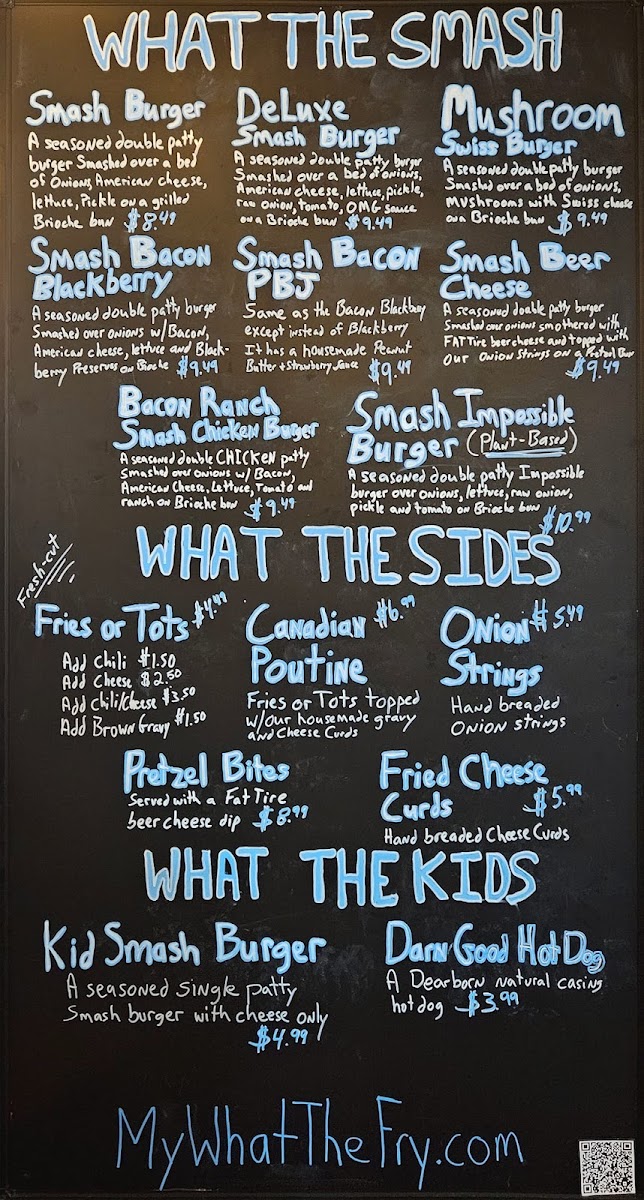 WHAT THE SMASH
Smash Burger
A seasoned double patty
burger Smashed over a bed
of Onions, American cheese,
lettuce, Pickle on a grilled
Brioche bun $8.49
DeLuxe
Smash Burger
A seasoned double patty burger
Smashed over a bed of onions,
American cheese, lettuce, pickle,
raw onion, tomato, OMG sauce
on a Brioche bun $9.49
Mushroom
Swiss Burger
A seasoned double patty burger
Smashed over a bed of onions,
Mushrooms with Swiss cheese
on a Brioche bun $9.49
Smash Bacon
Blackberry
A seasoned double patty burger
Smashed over onions w/Bacon,
American cheese, lettuce and Black-
berry Preserves on Brioche $9.49
Smash Bacon
PBJ
Same as the Bacon Blackberry
except instead of Blackberry
It has a housemade Peanut
Butter + Strawberry Sauce $9.49
Smash Beer
Cheese
A seasoned double patty burger
Smashed over onions smothered with
FAT Tire beer cheese and topped with
our Onion Strings on a Pretzel Bun
$9.49
Bacon Ranch
Smash Chicken Burger
A seasoned double CHICKEN patty
Smashed over onions w/ Bacon,
American Cheese, Lettuce, Tomato and
ranch on Brioche bun $9.49
Smash Impossible
Burger (Plant-Based)
A seasoned double patty Impossible
burger over onions, lettuce, raw onion,
pickle and tomato on Brioche bun
$10.99
WHAT THE SIDES
Fresh-cut
Fries or Tots $4.49
Add Chili $1.50
Add Cheese $2.50
Add Chili/Cheese $3.50
Add Brown Gravy $1.50
Canadian $6.99
Poutine
Fries or Tots topped
w/our housemade gravy
and Cheese Curds
Onion $5.49
Strings
Hand breaded
Onion strings
Pretzel Bites
Served with a Fat Tire
beer cheese dip $8.99
Fried Cheese
Curds $5.99
Hand breaded Cheese Curds
WHAT THE KIDS
Kid Smash Burger
A seasoned single patty
Smash burger with cheese only
$4.99
Darn Good Hot Dog
A Dearborn natural casing
hot dog $3.99
MyWhatTheFry.com